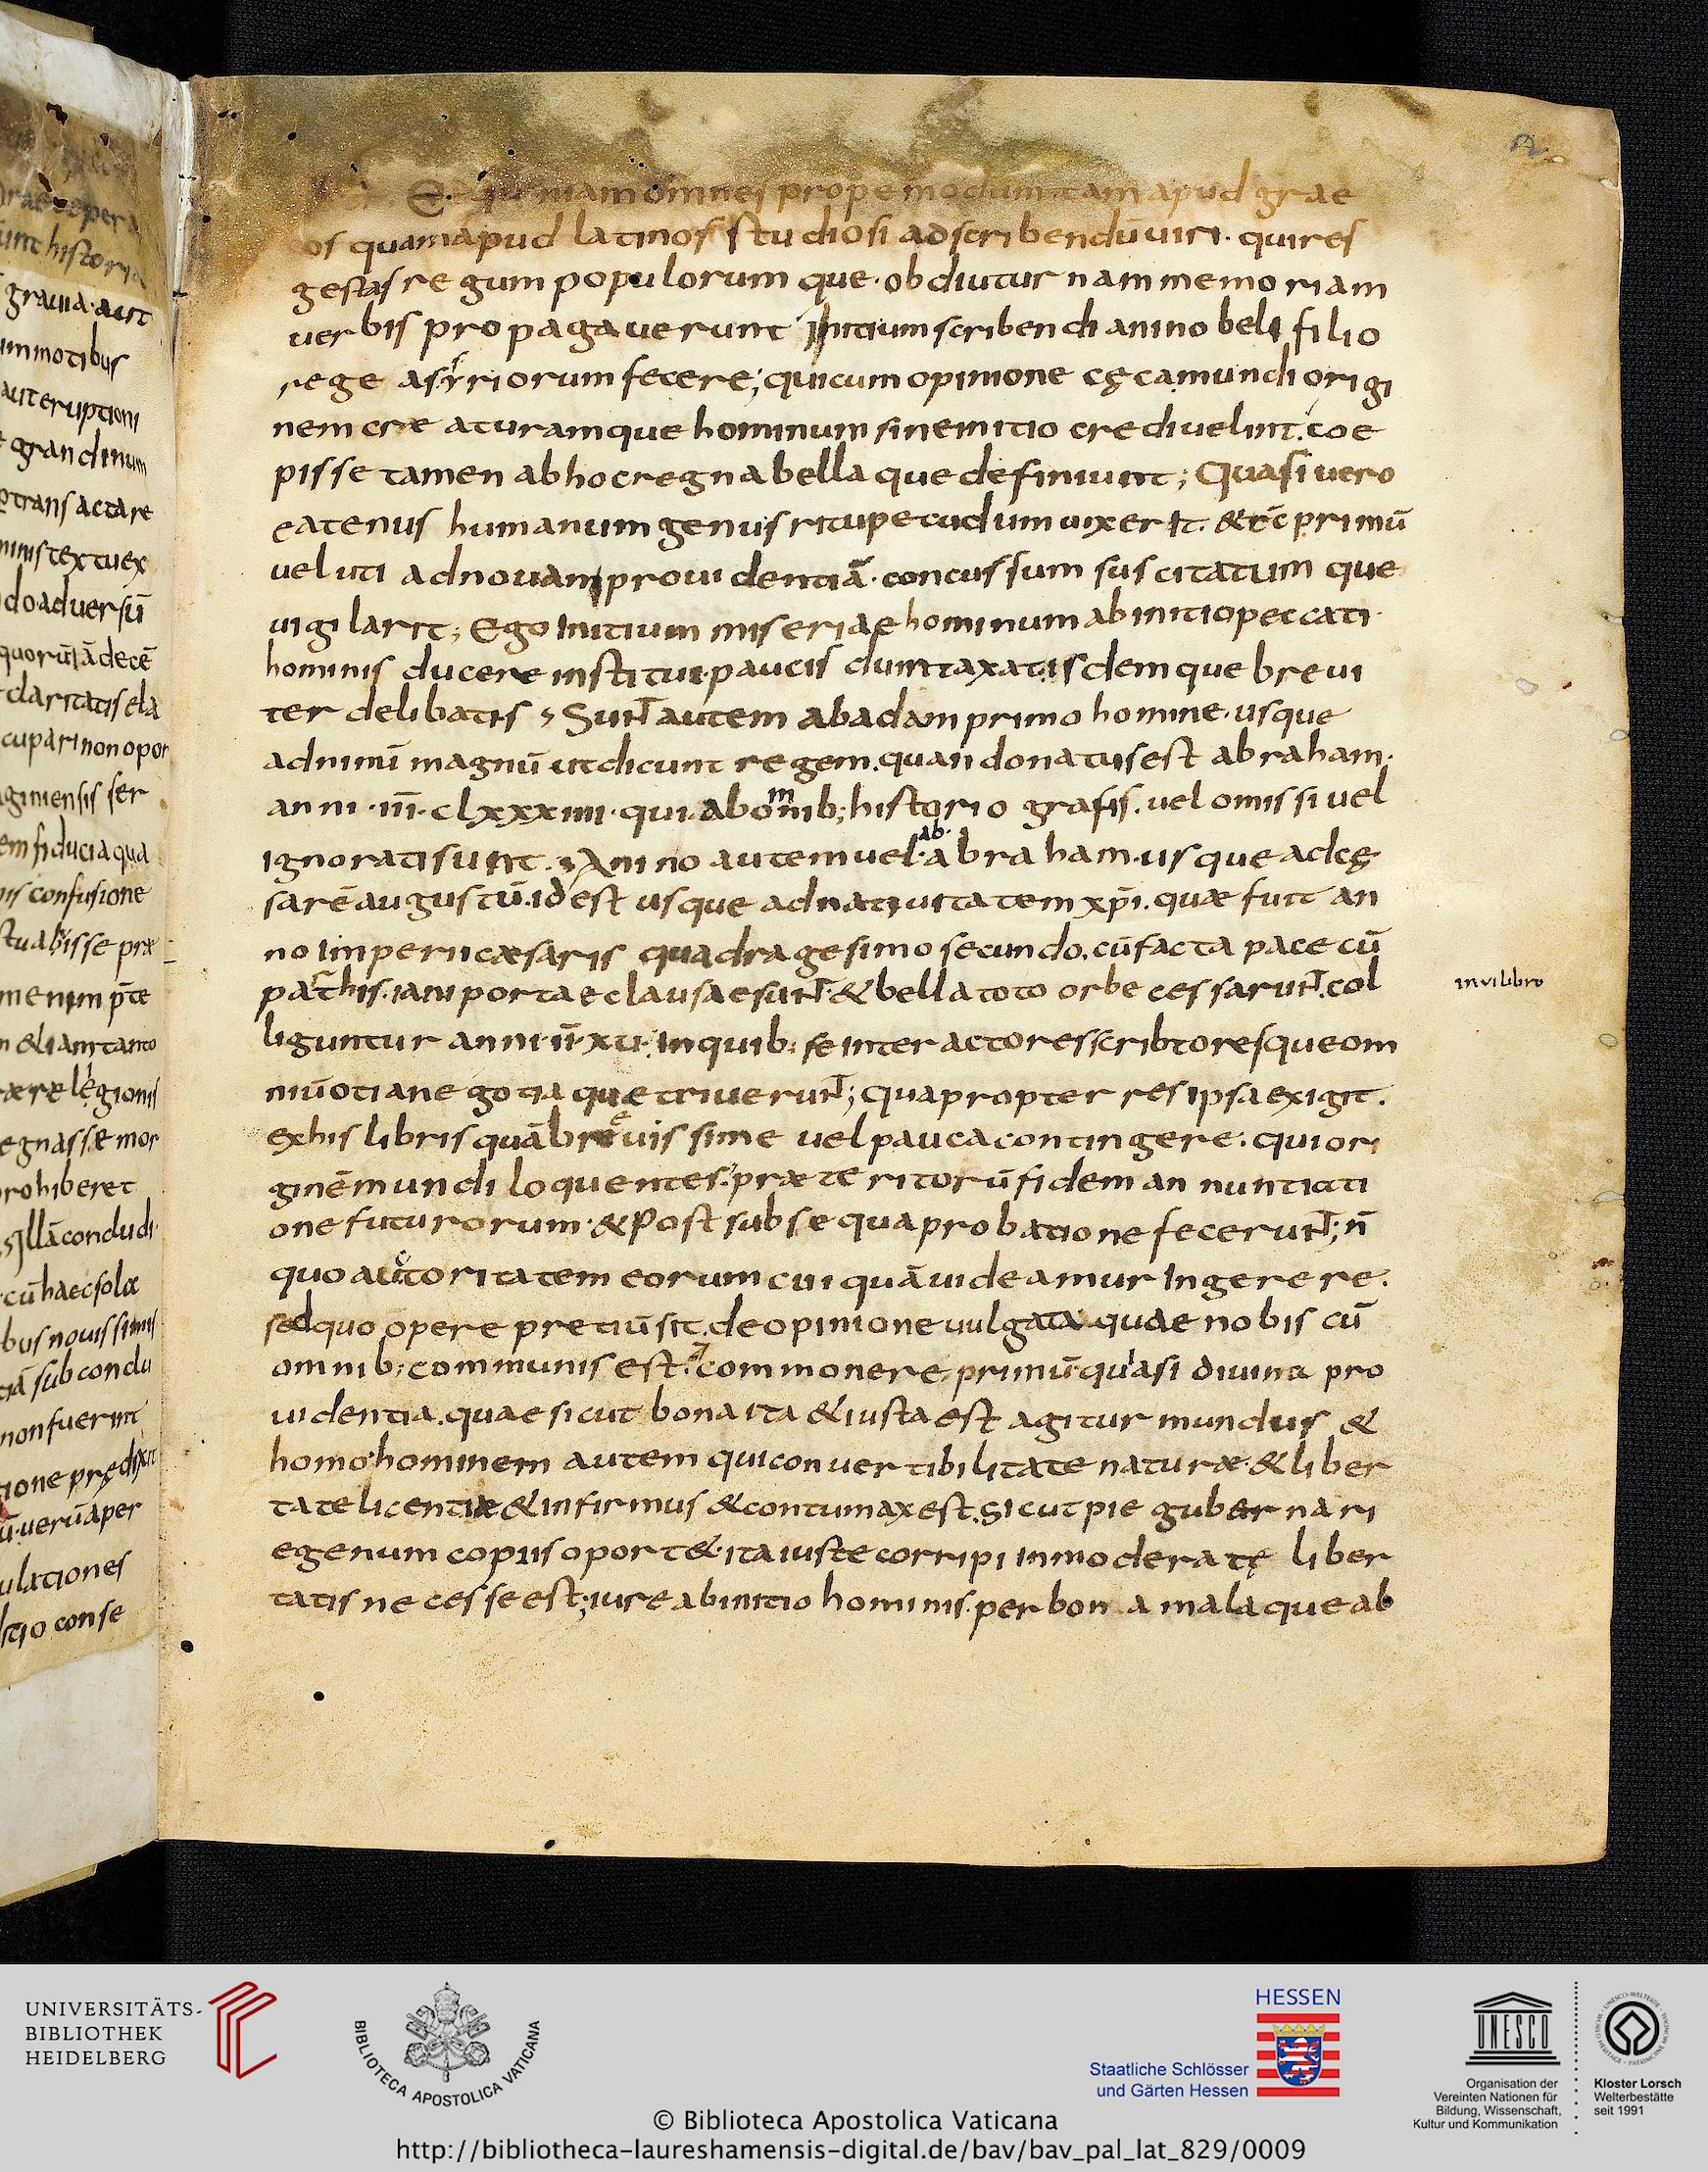 omnes propemodum tam apud grae
os quam apud latinos studiosi adscribendū uiri · qui res
gestas regum populorumque · ob diuturnam memoriam
uerbis propagauerunt Initium scribendi a nino beli filio
rege asyrriorum fecere; qui cum opinione cęca mundi origi
nem creaturamque hominum sine initio credi uelint · coe
pisse tamen ab hoc regna bellaque definiunt; Quasi uero
eatenus humanum genus ritu pecudum uixerit · & tc̄ primū
ueluti ad nouam prouidentiā · concussum suscitatumque
uigilarit; Ego Initium miseriae hominum ab initio peccati ·
hominis ducere institui · paucis dumtaxat isdemque breui
ter delibatis ; Sunt autem ab adam primo homine · usque
ad ninū magnū ut dicunt regem · quando natus est abraham ·
anni · iii̅ · clxxxiiii · qui · ab omnib; historiografis · uel omissi uel
ignorati sunt · ; A nino autem uel · ab · abraham · usque ad cę
sarē augustū · id est usque ad natiuitatem xp̄i · quae fuit an
no Imperii caesaris quadragesimo secundo · cū facta pace cū
parthis · iani portae clausae sunt · & bella toto orbe cessarunt · col
in vi libro
liguntur anni · ii̅ · xu · In quib; se inter actores scribtoresque om
niū otia negotiaque triuerunt; quapropter res ipsa exigit ·
ex his libris quā breuissime uel pauca contingere · qui ori
ginē mundi loquentes · praeteritorū fidem annuntiati
one futurorum · & post subsequa probatione fecerunt; n̄
quo auctoritatem eorum cuiquā uideamur Ingerere ·
sed quo opere pretiū sit · de opinione uulgata · quae nobis cū
omnib; communis est · commonere · primū · quasi diuina pro
uidentia · quae sicut bona ita & iusta est agitur mundus &
homo · hominem autem qui conuertibilitate naturae · & liber
tate licentiae & infirmus & contumax est · sicut pie gubernari
egenum copiis oport& · ita iuste corripi inmoderatę liber
tatis necesse est; iure ab initio hominis · per bona malaque ab
UNIVERSITÄTS-
BIBLIOTHEK
HEIDELBERG
BIBLIOTECA APOSTOLICA VATICANA
HESSEN
Staatliche Schlösser
und Gärten Hessen
UNESCO
Organisation der
Vereinten Nationen für
Bildung, Wissenschaft,
Kultur und Kommunikation
Kloster Lorsch
Welterbestätte
seit 1991
© Biblioteca Apostolica Vaticana
http://bibliotheca-laureshamensis-digital.de/bav/bav_pal_lat_829/0009